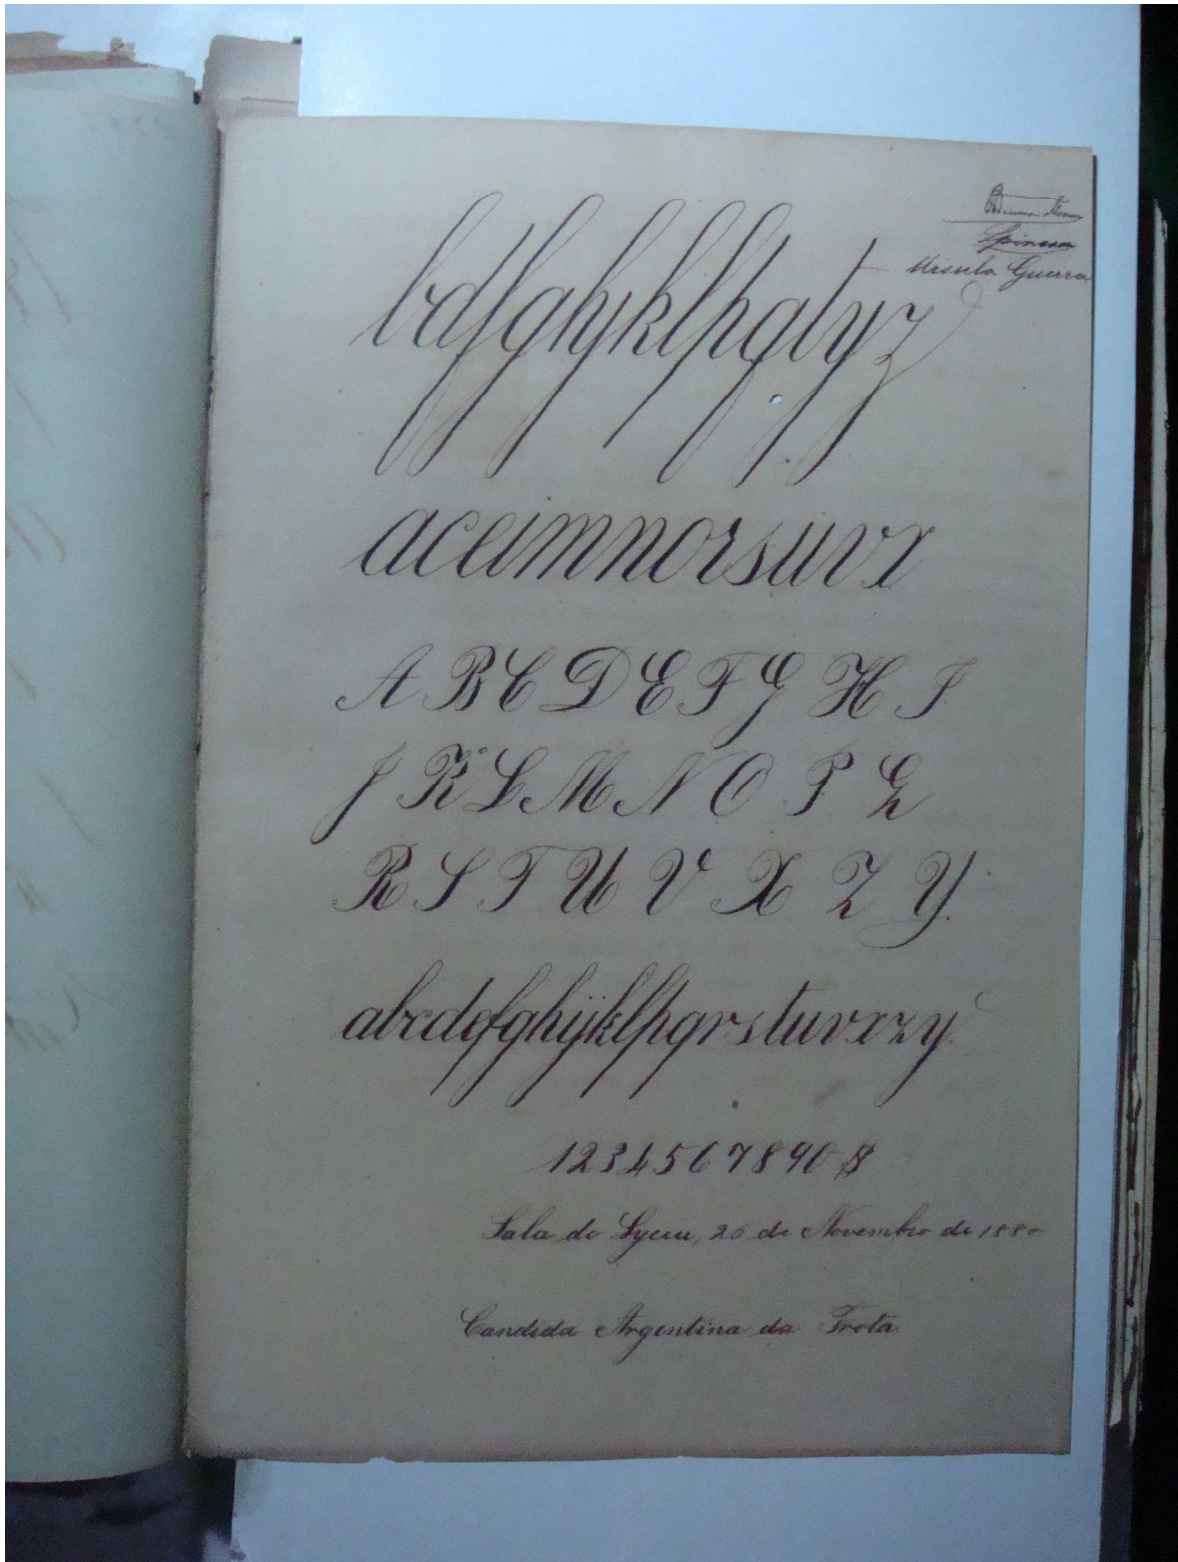 Spinosa
Ursula Guerra
bdfghjklpqtyz
aceimnorsuvx
A B C D E F G H I
J K L M N O P Q
R S T U V X Z Y.
abcdefghijklpqrstuvxzy.
1234567890 $
Sala do Lyceu, 26 de Novembro de 1880
Candida Argentina da Frota